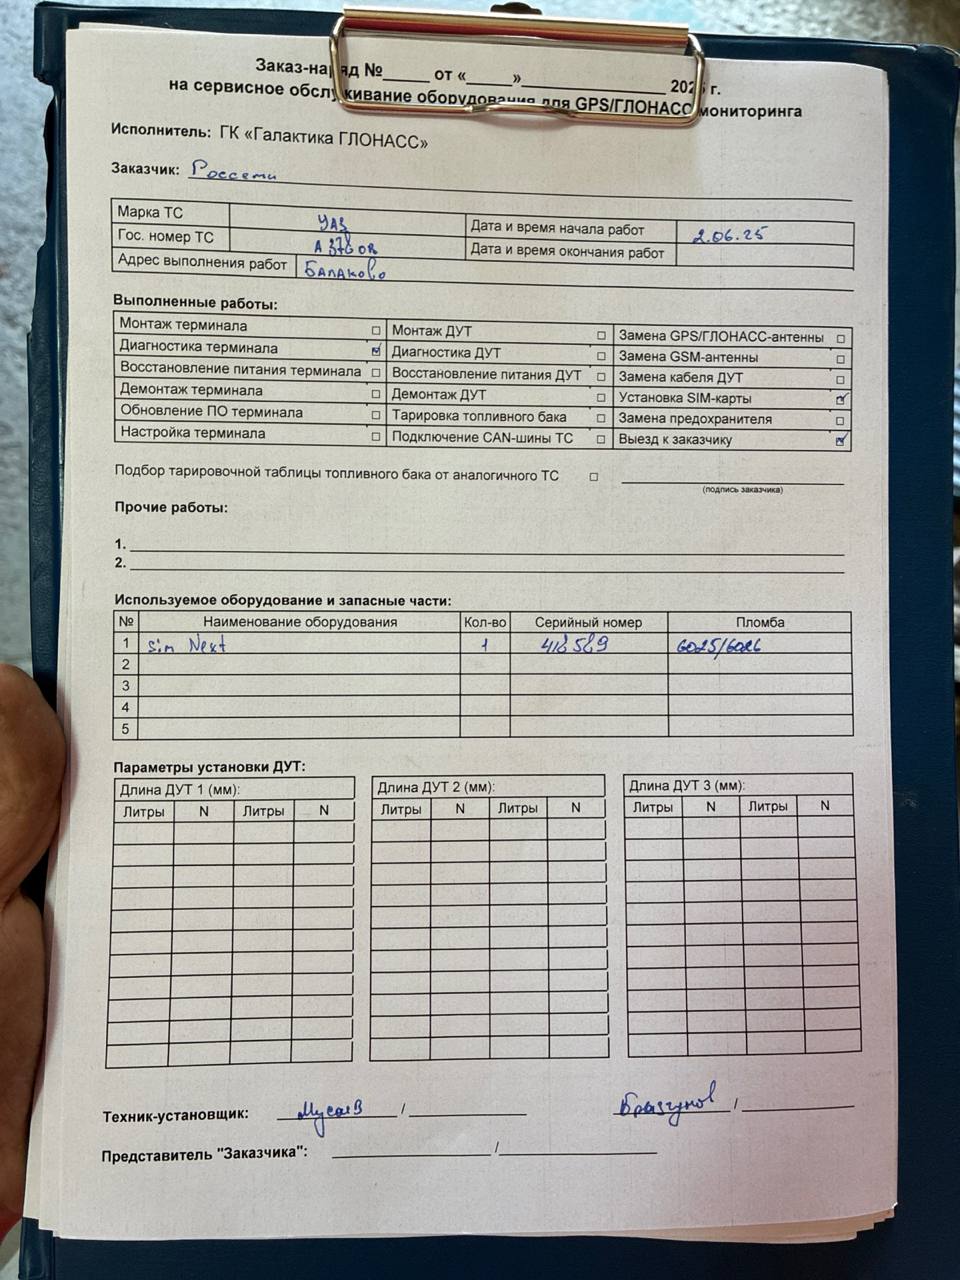 Заказ-наряд №_____ от «_____»_______________ 2025 г.
на сервисное обслуживание оборудования для GPS/ГЛОНАСС мониторинга
Исполнитель: ГК «Галактика ГЛОНАСС»
Заказчик: Россети
Марка ТС УАЗ Дата и время начала работ 2.06.25
Гос. номер ТС А 378 ОВ Дата и время окончания работ
Адрес выполнения работ Балаково
Выполненные работы:
Монтаж терминала ☐ Монтаж ДУТ ☐ Замена GPS/ГЛОНАСС-антенны ☐
Диагностика терминала ☑ Диагностика ДУТ ☐ Замена GSM-антенны ☐
Восстановление питания терминала ☐ Восстановление питания ДУТ ☐ Замена кабеля ДУТ ☐
Демонтаж терминала ☐ Демонтаж ДУТ ☐ Установка SIM-карты ☑
Обновление ПО терминала ☐ Тарировка топливного бака ☐ Замена предохранителя ☐
Настройка терминала ☐ Подключение CAN-шины ТС ☐ Выезд к заказчику ☑
Подбор тарировочной таблицы топливного бака от аналогичного ТС ☐
(подпись заказчика)
Прочие работы:
1.
2.
Используемое оборудование и запасные части:
№ Наименование оборудования Кол-во Серийный номер Пломба
1 Sim Next 1 418589 6025/6026
2
3
4
5
Параметры установки ДУТ:
Длина ДУТ 1 (мм): Длина ДУТ 2 (мм): Длина ДУТ 3 (мм):
Литры N Литры N Литры N Литры N Литры N Литры N
Техник-установщик: Мусаев / Брызгунов /
Представитель "Заказчика": /